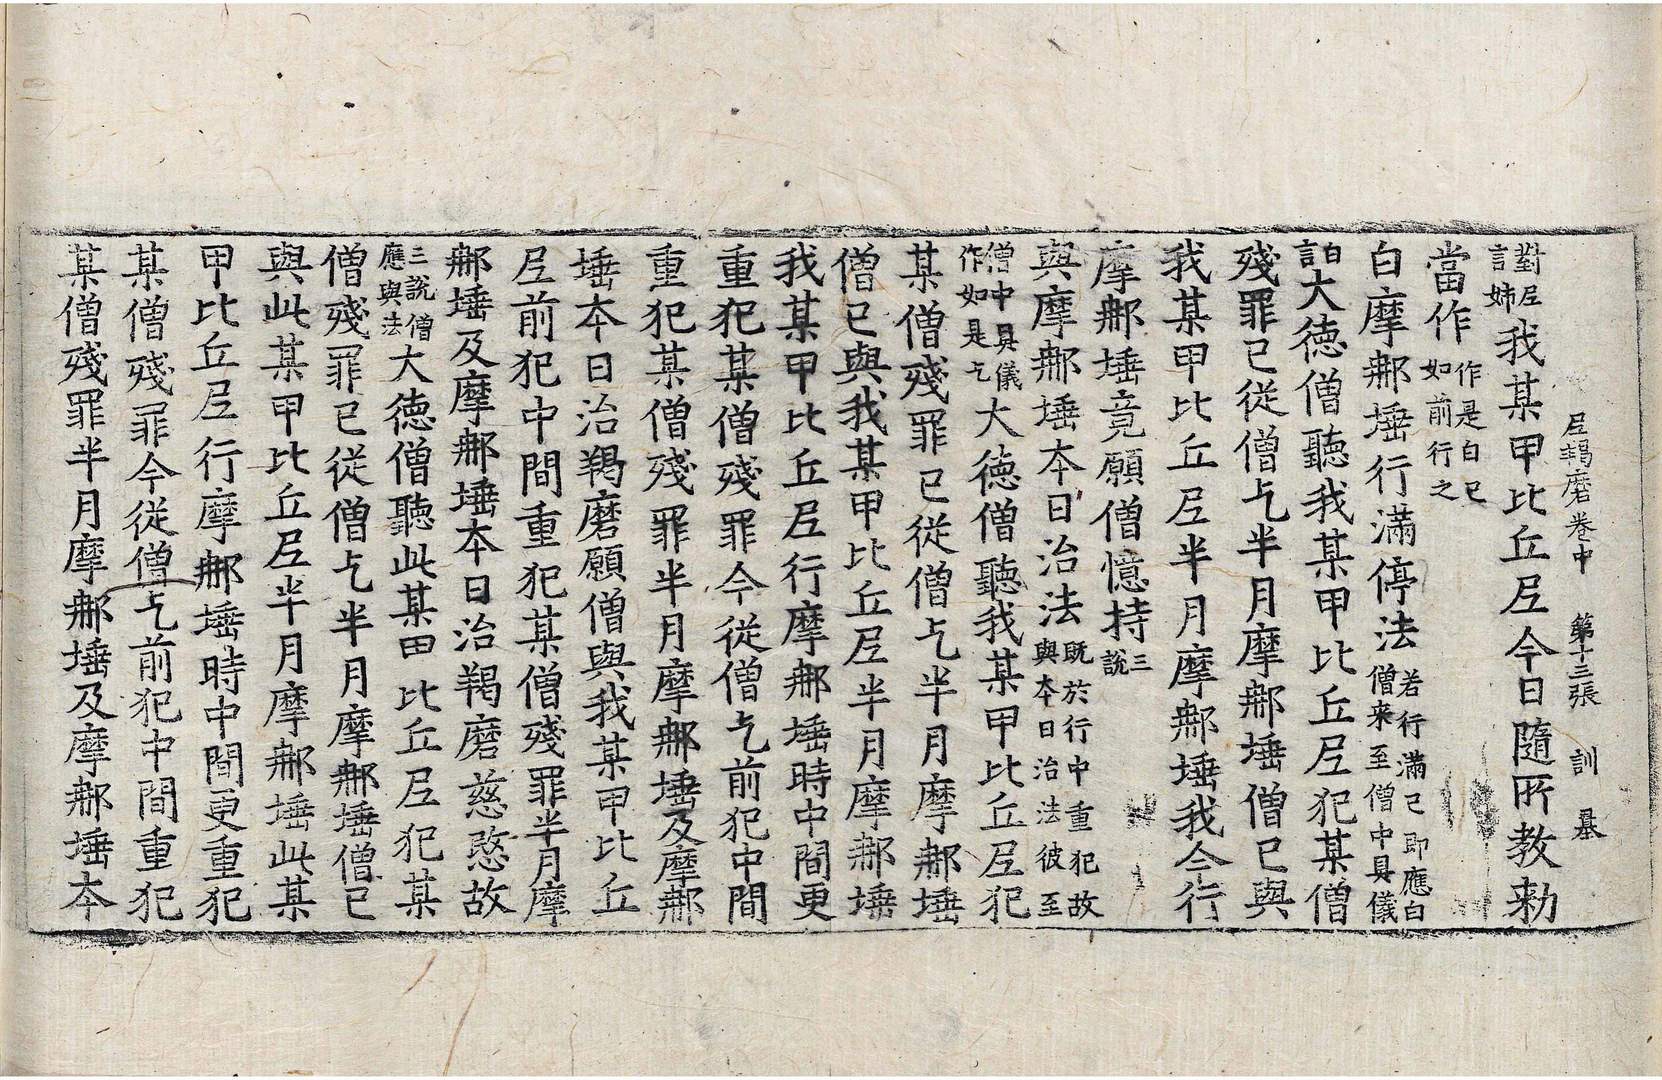 尼羯磨卷中 第十三張 訓 墓
對尼言姉我某甲比丘尼今日隨所教勅
當作作是白已如前行之
白摩那埵行滿停法若行滿已即應白僧来至僧中具儀
白言大德僧聽我某甲比丘尼犯某僧
殘罪已從僧乞半月摩那埵僧已與
我某甲比丘尼半月摩那埵我今行
摩那埵竟願僧憶持三說
與摩那埵本日治法既於行中重犯故與本日治法彼至
僧中具儀作如是乞大德僧聽我某甲比丘尼犯
某僧殘罪已從僧乞半月摩那埵
僧已與我某甲比丘尼半月摩那埵
我某甲比丘尼行摩那埵時中間更
重犯某僧殘罪今從僧乞前犯中間
重犯某僧殘罪半月摩那埵及摩那
埵本日治羯磨願僧與我某甲比丘
尼前犯中間重犯某僧殘罪半月摩
那埵及摩那埵本日治羯磨慈愍故
三說僧應與法大德僧聽此某甲比丘尼犯某
僧殘罪已從僧乞半月摩那埵僧已
與此某甲比丘尼半月摩那埵此某
甲比丘尼行摩那埵時中間更重犯
某僧殘罪今從僧乞前犯中間重犯
某僧殘罪半月摩那埵及摩那埵本